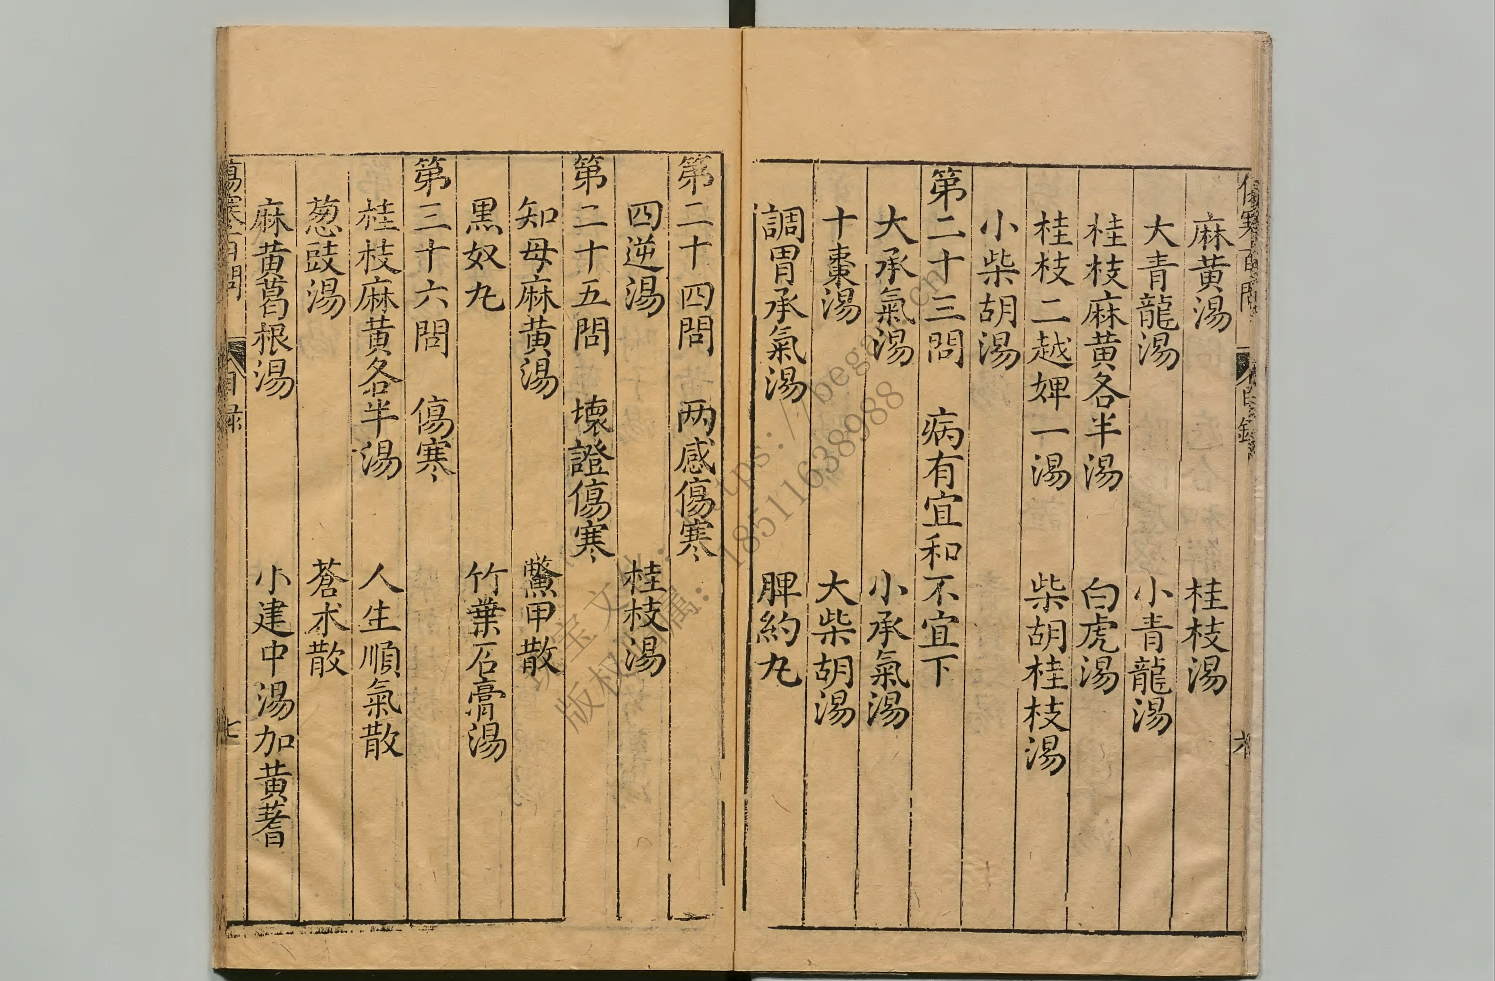 麻黄湯　桂枝湯
大青龍湯　小青龍湯
桂枝麻黄各半湯　白虎湯
桂枝二越婢一湯　柴胡桂枝湯
小柴胡湯
第二十三問　病有宜和不宜下
大承氣湯　小承氣湯
十棗湯　大柴胡湯
調胃承氣湯　脾約九
第二十四問　两感傷寒
四逆湯　桂枝湯
第二十五問　壞證傷寒
知母麻黄湯　鱉甲散
黑奴九　竹葉石膏湯
第三十六問　傷寒
桂枝麻黄各半湯　人生順氣散
葱豉湯　蒼术散
麻黄葛根湯　小建中湯加黄蓍
傷寒百問　目録　七
版权
18511638988